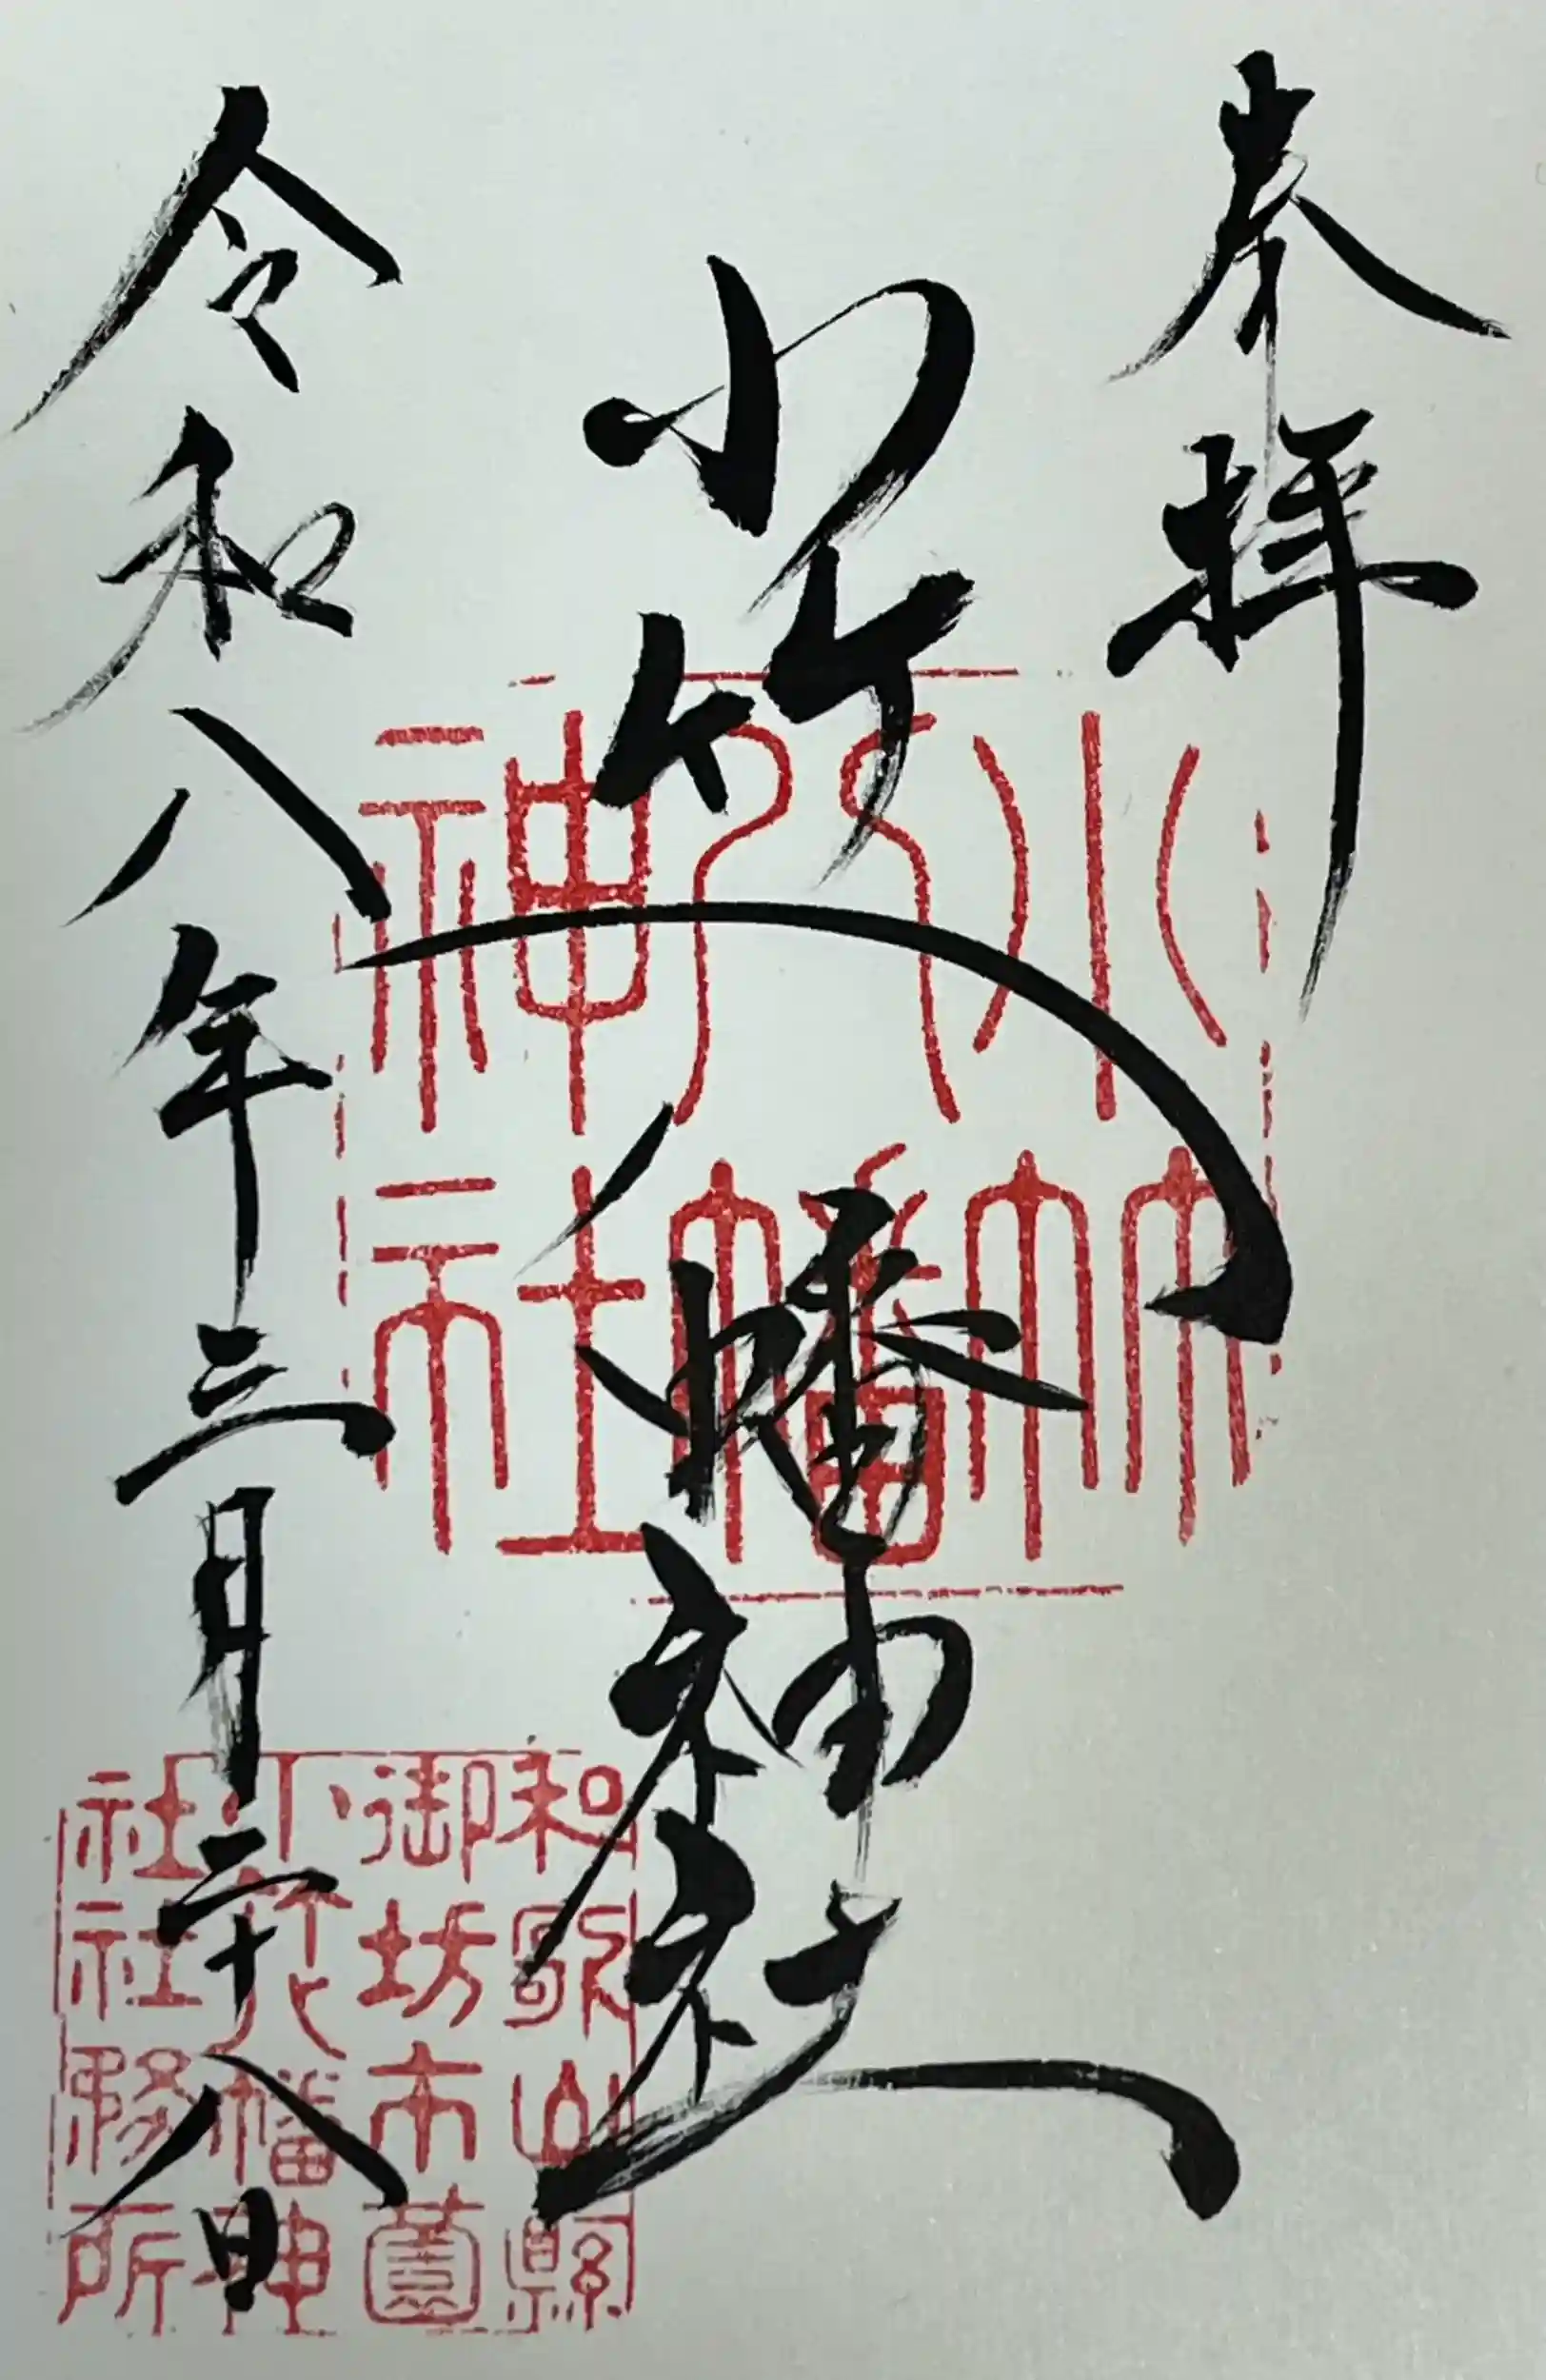 奉拝
小竹八幡神社
令和八年三月二十八日
小竹八幡神社
和歌山縣
御坊市薗
小竹八幡神
社社務所